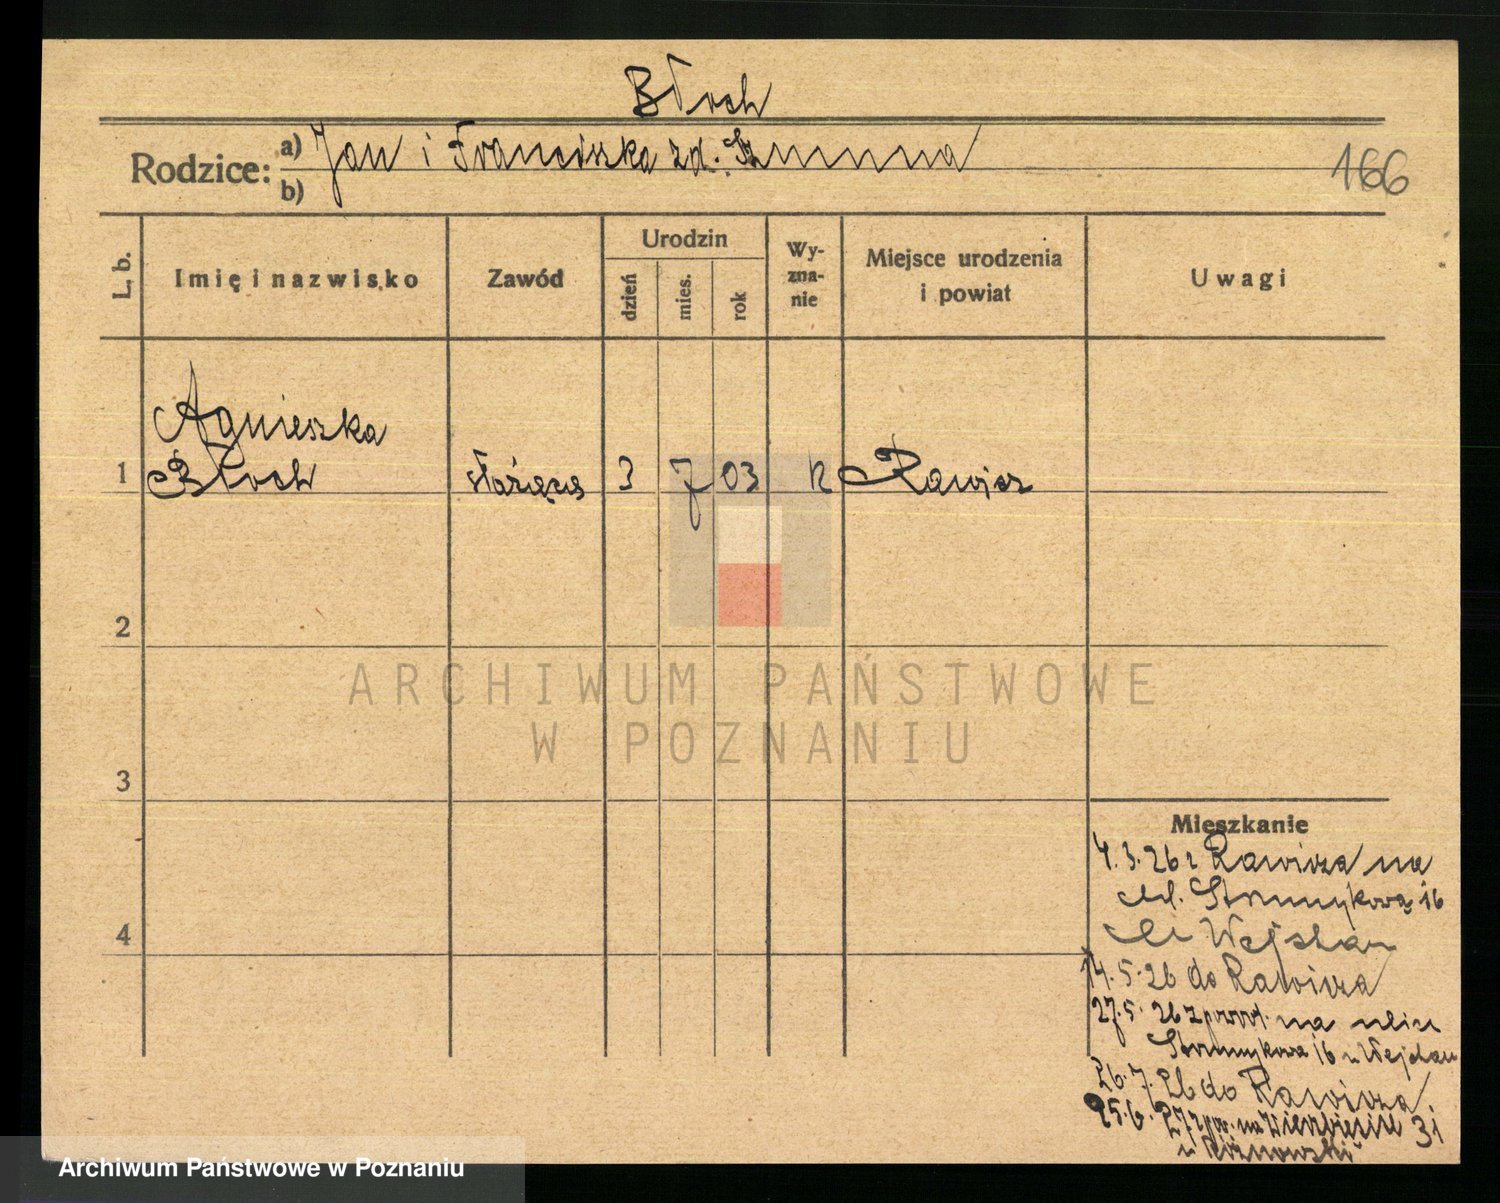 Błoch
Rodzice: a) Jan i Franciszka zd.
b)
166
L. b.
Imię i nazwisko
Zawód
Urodzin
dzień
mies.
rok
Wy-
zna-
nie
Miejsce urodzenia
i powiat
Uwagi
Agnieszka
1 Błoch służąca 3 7 03 k Rawicz
2
3
4
Mieszkanie
4.3.26 z Rawicza na
ul. Strumykową 16
14.5.26 do Rawicza
27.5.26 z powrot. na ulicę
Strumykowa 16 u
26.7.26 do Rawicza
25.6.27 z pow. na Wierzbięcice 31
u
ARCHIWUM PAŃSTWOWE
W POZNANIU
Archiwum Państwowe w Poznaniu